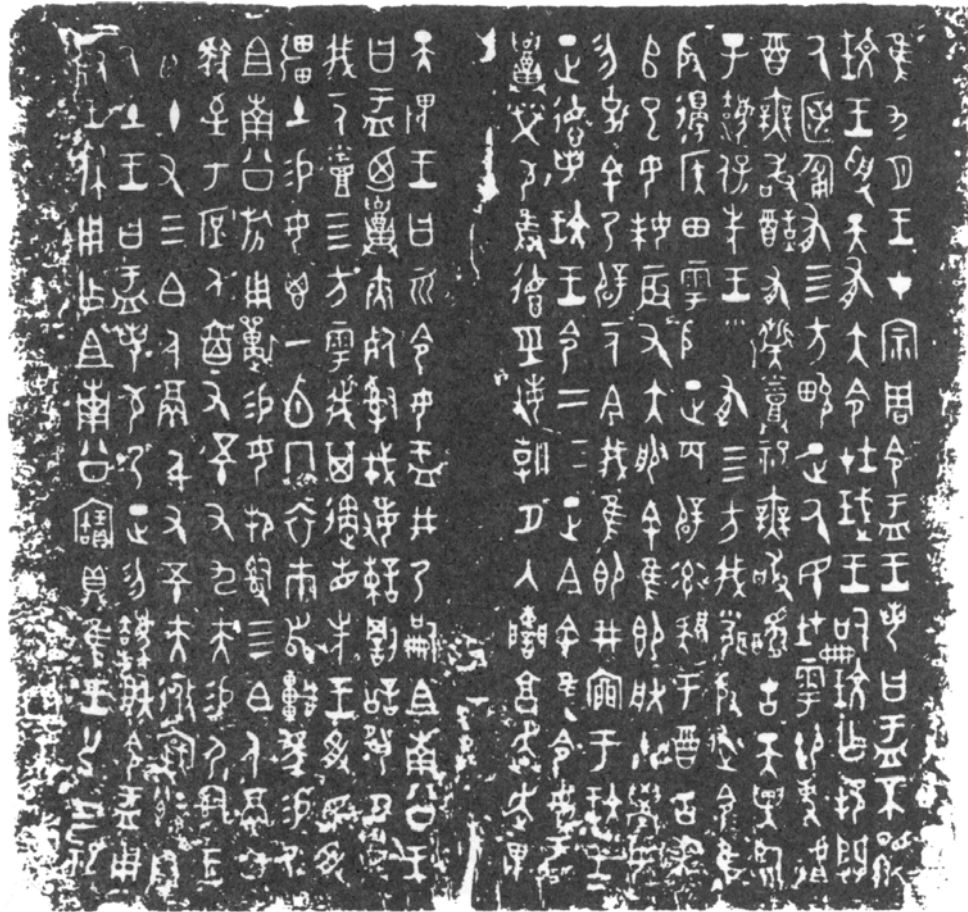 隹九月王才宗周令盂王若曰盂不顯
玟王受天有大令在珷王嗣玟乍邦闢
厥匿匍有四方畯正厥民在雩御事䖒
酉無敢酖有髭烝祀無敢擾古天異臨
子灋保先王有四方我聞殷述令隹
殷邊侯田雩殷正百辟率肄于酉古喪
𠂤巳女妹辰又大服余隹即朕小學女
勿𠭯余乃辟一人今我隹即井㐭于玟王
正德若玟王令二三正今余隹令女盂
召榮敬雍德經敏朝夕入讕享奔走畏
天畏王曰而令女盂井乃嗣且南公王
曰盂乃召夾死司戎敏諫罰訟夙夕召
我一人烝四方雩我其遹省先王受民受
疆土易女鬯一卣冂衣巿舄車馬易乃
且南公旂用狩易女邦司四白人鬲自
馭至于庶人六百又五十又九夫易尸司王
臣十又三白人鬲千又五十夫遷自
厥土王曰盂若敬乃正勿灋朕令盂用
對王休用乍且南公寶鼎隹王廿又三祀